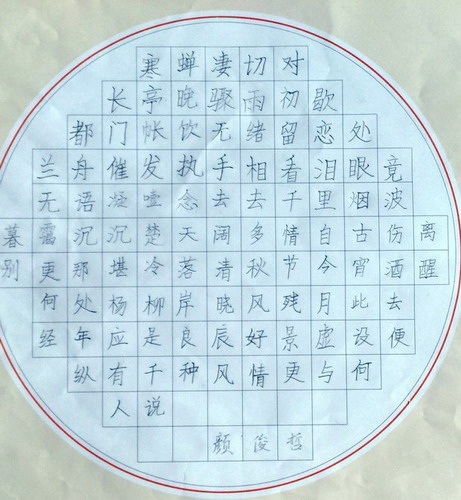 寒蝉凄切对
长亭晚骤雨初歇
都门帐饮无绪留恋处
兰舟催发执手相看泪眼竟
无语凝噎念去去千里烟波
暮霭沉沉楚天阔多情自古伤离
别更那堪冷落清秋节今宵酒醒
何处杨柳岸晓风残月此去
经年应是良辰好景虚设便
纵有千种风情更与何
人说
颜俊哲